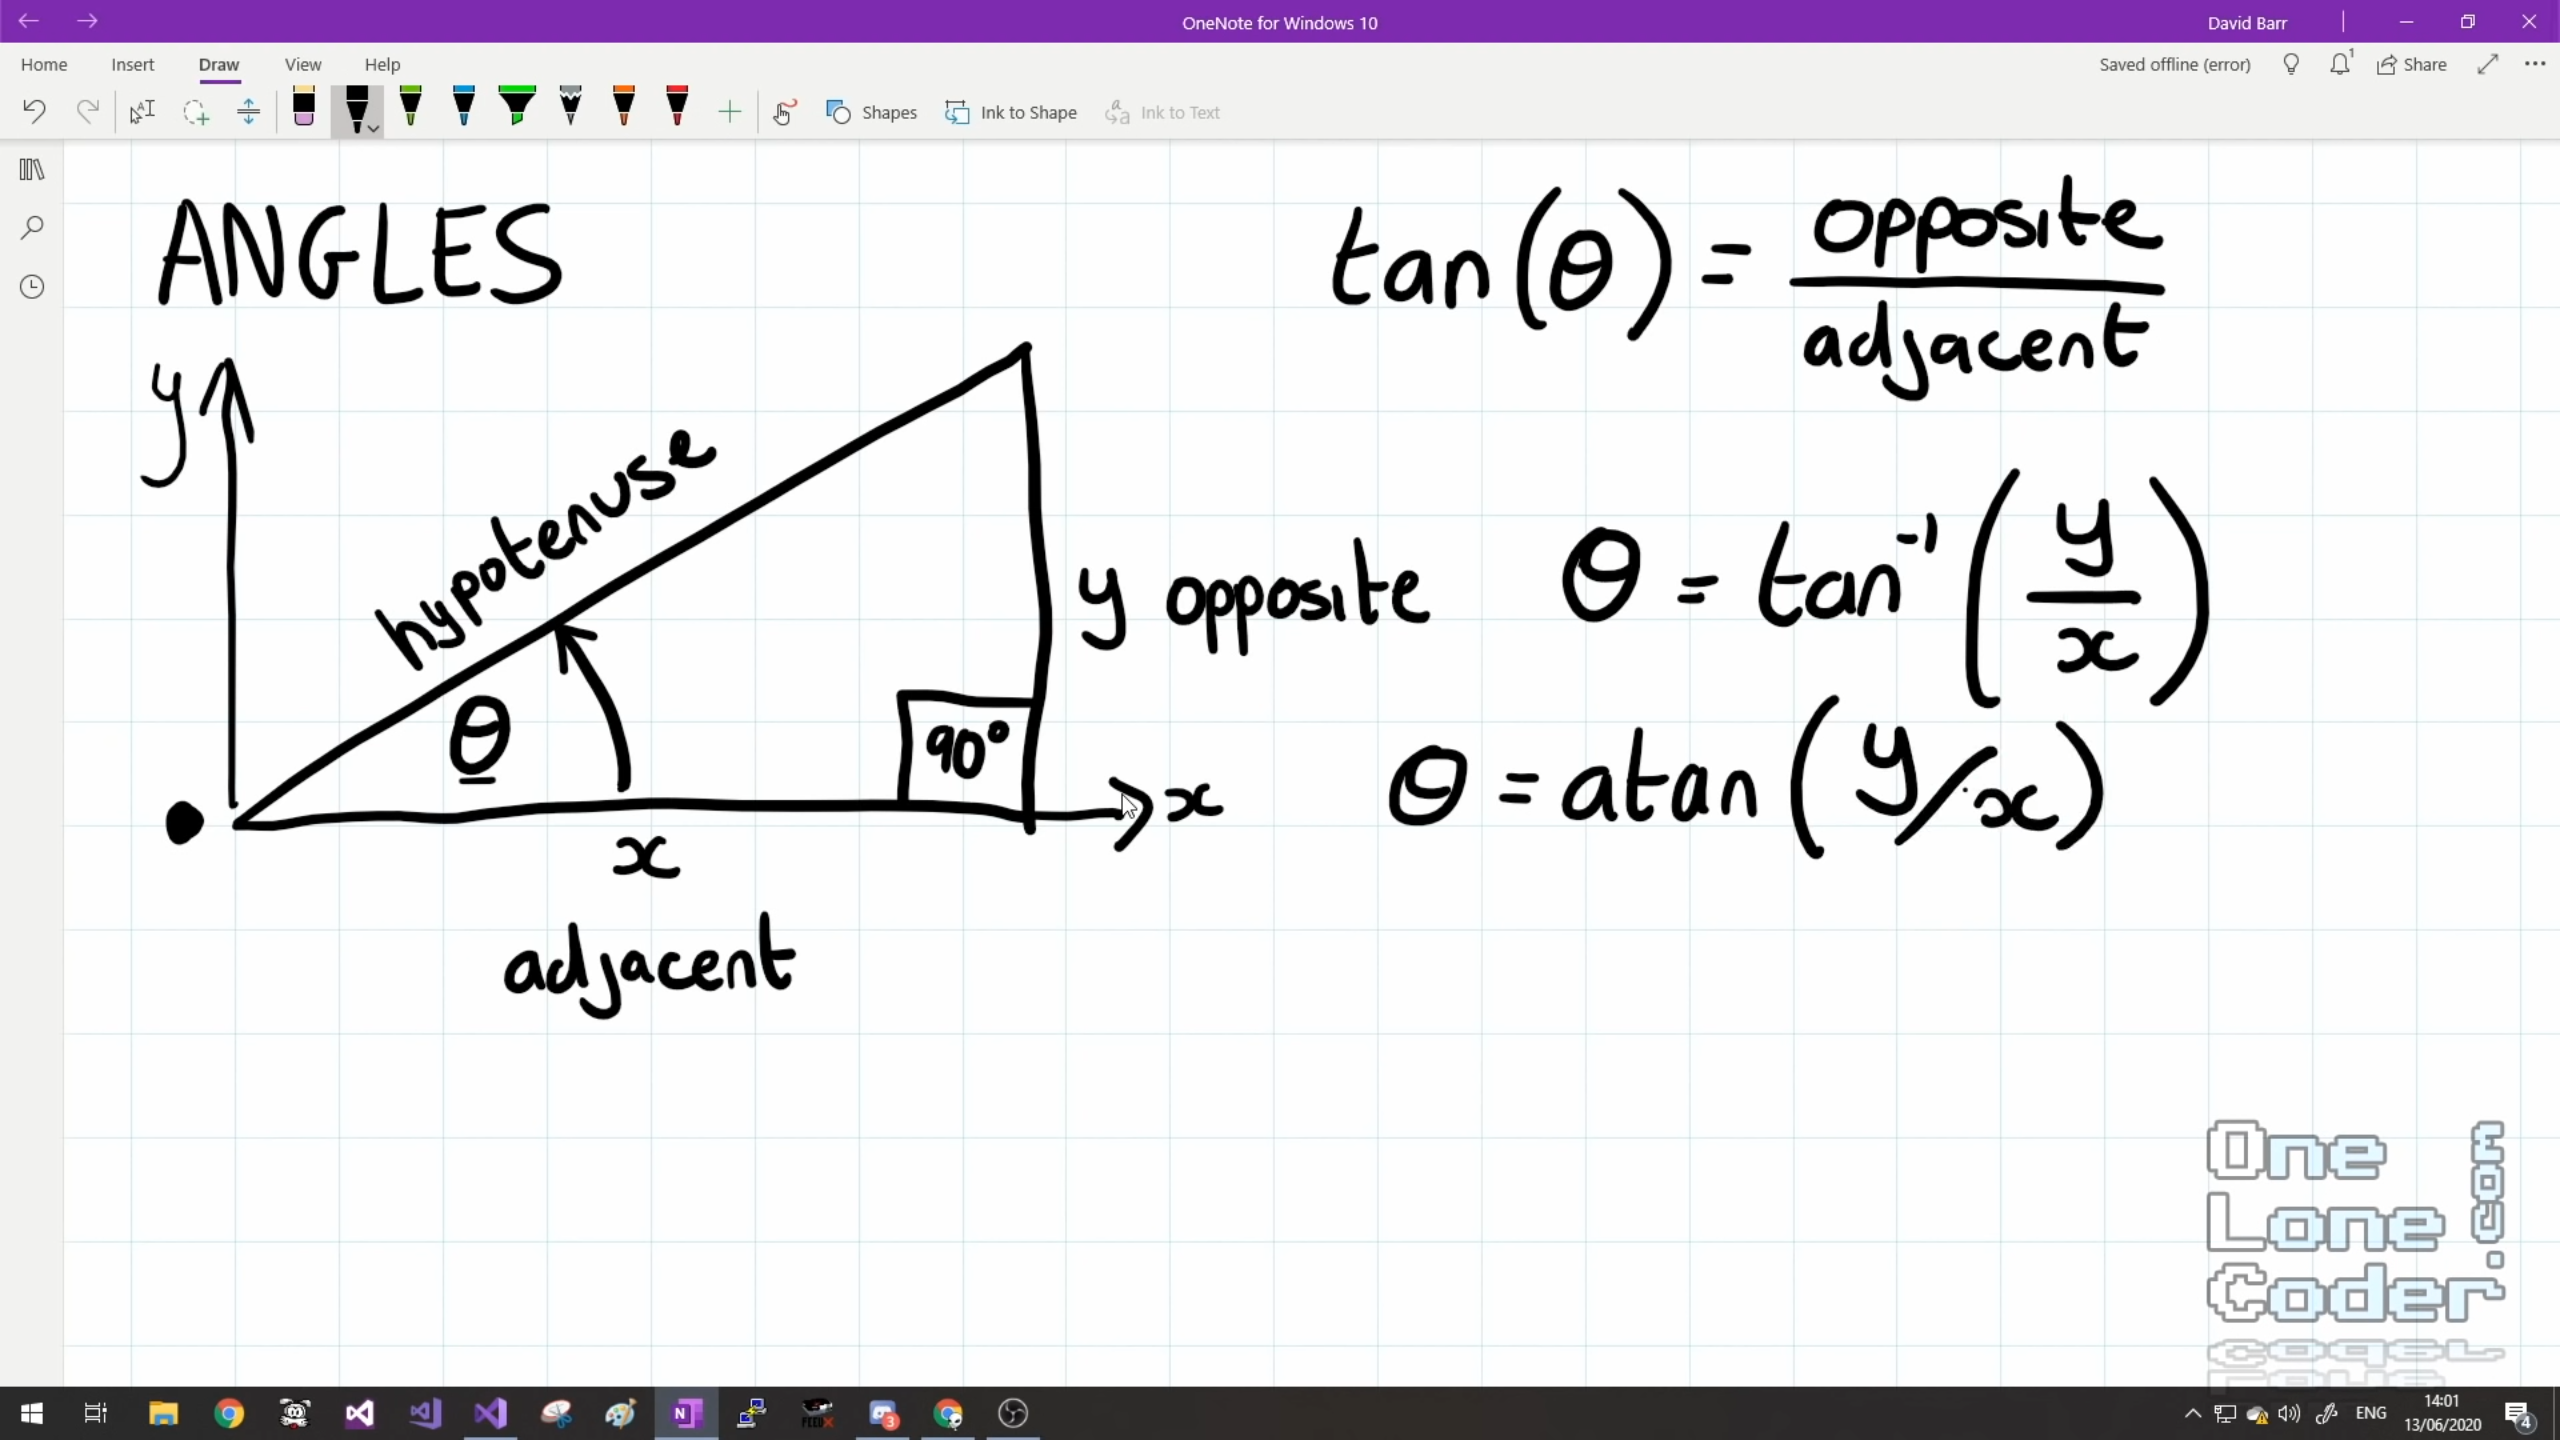 OneNote for Windows 10
David Barr
Home Insert Draw View Help
Saved offline (error)
1
Share
Shapes
Ink to Shape
Ink to Text
ANGLES
tan(θ) = opposite
adjacent
y
hypotenuse
θ
90°
y opposite
x
x
adjacent
θ = tan⁻¹(y
x)
θ = atan(y/x)
One
Lone
Coder
.com
N
3
ENG
14:01
13/06/2020
4